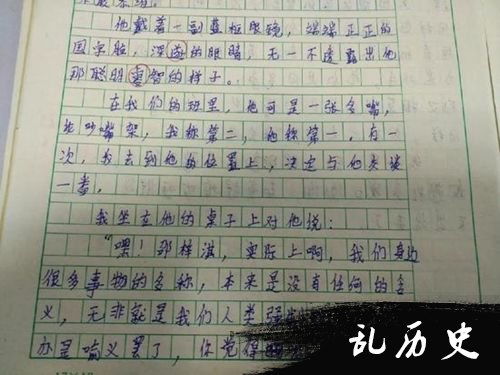 他戴着一副蓝框眼镜，端端正正的
国字脸，深邃的眼睛，无一不透露出他
那聪明睿智的样子。
在我们的班里，他可是一张名嘴，
论吵嘴架，我称第二，他称第一，有一
次，我去到他的位置上，决定与他长谈
一番，
我坐在他的桌子上对他说：
“嘿！那梓淇，实际上啊，我们身边
很多事物的名称，本来是没有任何的含
义，无非就是我们人类强
亦是喻义罢了，你觉得
乱历史